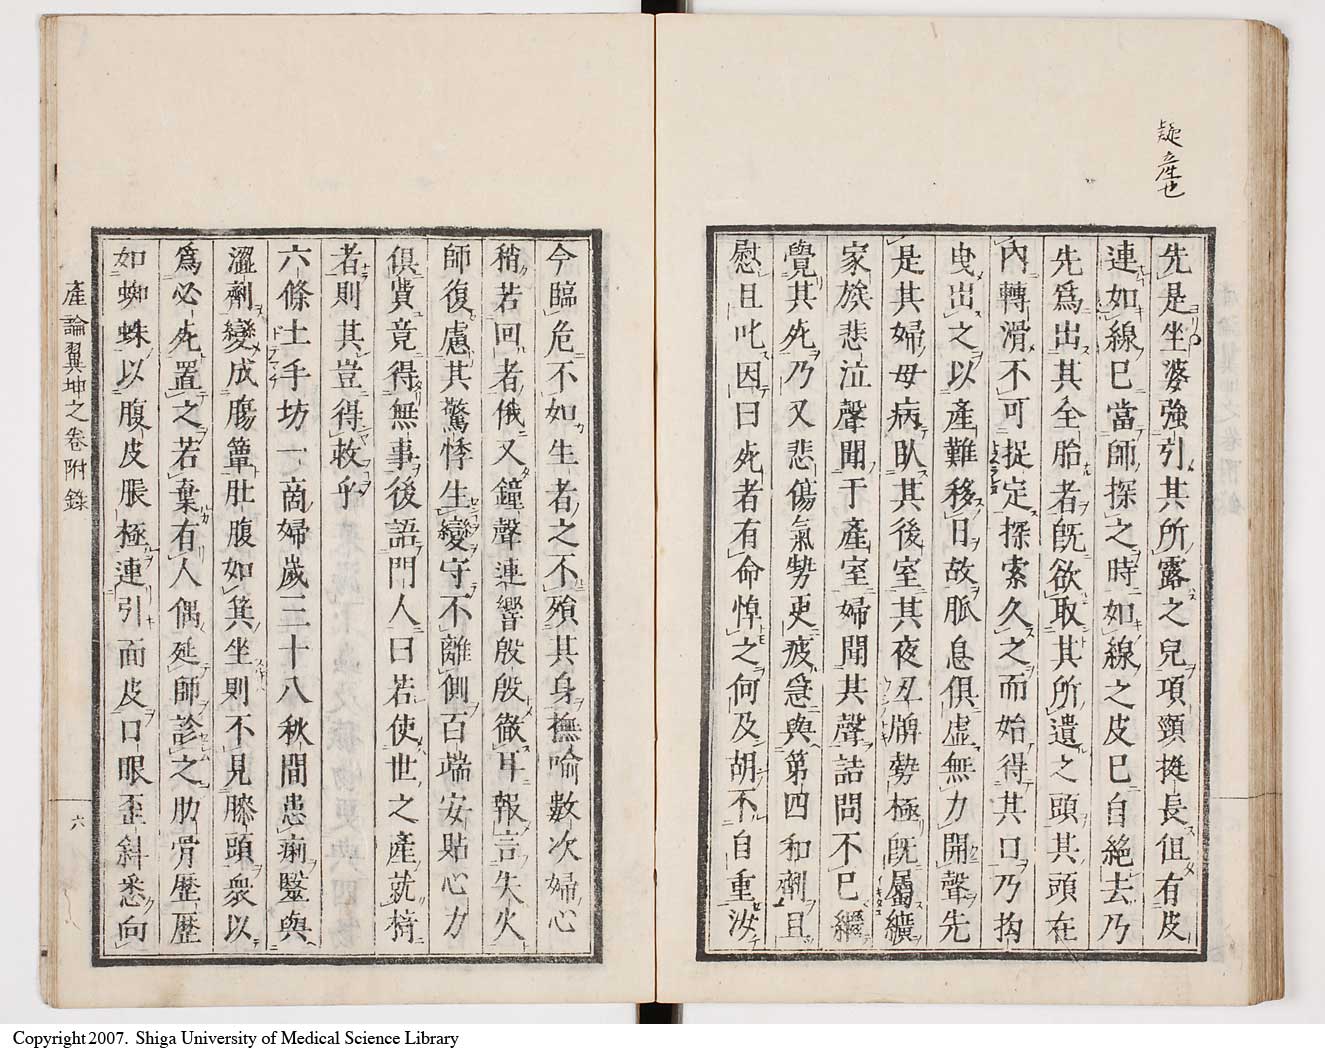 疑産也
先是坐婆強引其所露之兒項頸挺長但有皮
連如線已當師探之時如線之皮已自絶去乃
先爲出其全胎者既欲取其所遺之頭其頭在
內轉滑不可捉定探索久之而始得其口乃拘
曳出之以産難移日故脈息俱虛無力開聲先
是其婦母病臥其後室其夜丑牌勢極既屬纊
家族悲泣聲聞于産室婦聞其聲詰問不已纔
覺其死乃又悲傷氣勢更疲急與第四和劑且
慰且叱因曰死者有命悼之何及胡不自重汝
今臨危不如生者之不殞其身撫喻數次婦心
稍若回者俄又鐘聲連響殷殷徹耳報言失火
師復慮其驚悸生變守不離側百端安貼心力
俱費竟得無事後語門人曰若使世之產就椅
者則其豈得救乎
六條土手坊一商婦歲三十八秋間患痢醫與
澀劑變成膓蕈肚腹如箕坐則不見膝頭衆以
爲必死置之若棄有人偶延師診之肋骨歷歷
如蜘蛛以腹皮脹極連引面皮口眼歪斜悉向
產論翼坤之卷附錄
六
Copyright 2007. Shiga University of Medical Science Library